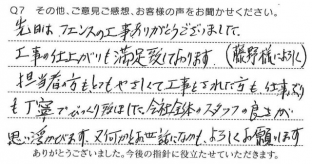 Q7 その他、ご意見ご感想、お客様の声をお聞かせください。
先日はフェンスの工事ありがとうございました。
工事の仕上がりも満足致しております。(藤野様によろしく)
担当者の方もとてもやさしくて工事をされた方も仕事ぶり
も丁寧でびっくり致しました。会社全体のスタッフの良さが
思い浮かびます。又何かとお世話になるかも、よろしくお願いします
ありがとうございました。今後の指針に役立たせていただきます。